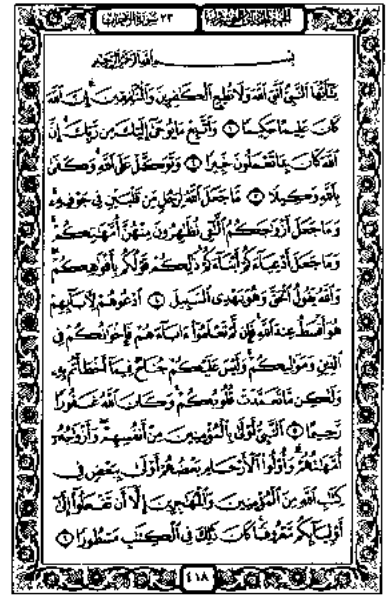 الجزء الحادي والعشرون ٣٣ سورة الأحزاب
بسم الله الرحمن الرحيم
يَٰٓأَيُّهَا ٱلنَّبِيُّ ٱتَّقِ ٱللَّهَ وَلَا تُطِعِ ٱلْكَٰفِرِينَ وَٱلْمُنَٰفِقِينَ إِنَّ ٱللَّهَ
كَانَ عَلِيمًا حَكِيمًا ١ وَٱتَّبِعْ مَا يُوحَىٰٓ إِلَيْكَ مِن رَّبِّكَ إِنَّ
ٱللَّهَ كَانَ بِمَا تَعْمَلُونَ خَبِيرًا ٢ وَتَوَكَّلْ عَلَى ٱللَّهِ وَكَفَىٰ
بِٱللَّهِ وَكِيلًا ٣ مَّا جَعَلَ ٱللَّهُ لِرَجُلٍ مِّن قَلْبَيْنِ فِي جَوْفِهِۦ
وَمَا جَعَلَ أَزْوَٰجَكُمُ ٱلَّٰٓـِٔي تُظَٰهِرُونَ مِنْهُنَّ أُمَّهَٰتِكُمْ
وَمَا جَعَلَ أَدْعِيَآءَكُمْ أَبْنَآءَكُمْ ذَٰلِكُمْ قَوْلُكُم بِأَفْوَٰهِكُمْ
وَٱللَّهُ يَقُولُ ٱلْحَقَّ وَهُوَ يَهْدِي ٱلسَّبِيلَ ٤ ٱدْعُوهُمْ لِءَابَآئِهِمْ
هُوَ أَقْسَطُ عِندَ ٱللَّهِ فَإِن لَّمْ تَعْلَمُوٓا۟ ءَابَآءَهُمْ فَإِخْوَٰنُكُمْ فِي
ٱلدِّينِ وَمَوَٰلِيكُمْ وَلَيْسَ عَلَيْكُمْ جُنَاحٌ فِيمَآ أَخْطَأْتُم بِهِۦ
وَلَٰكِن مَّا تَعَمَّدَتْ قُلُوبُكُمْ وَكَانَ ٱللَّهُ غَفُورًا
رَّحِيمًا ٥ ٱلنَّبِيُّ أَوْلَىٰ بِٱلْمُؤْمِنِينَ مِنْ أَنفُسِهِمْ وَأَزْوَٰجُهُۥٓ
أُمَّهَٰتُهُمْ وَأُو۟لُوا۟ ٱلْأَرْحَامِ بَعْضُهُمْ أَوْلَىٰ بِبَعْضٍ فِي
كِتَٰبِ ٱللَّهِ مِنَ ٱلْمُؤْمِنِينَ وَٱلْمُهَٰجِرِينَ إِلَّآ أَن تَفْعَلُوٓا۟ إِلَىٰٓ
أَوْلِيَآئِكُم مَّعْرُوفًا كَانَ ذَٰلِكَ فِي ٱلْكِتَٰبِ مَسْطُورًا ٦
٤١٨